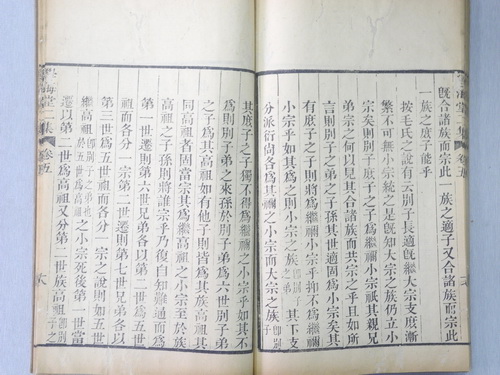 既合諸族而宗此一族之適子又合諸族而宗此
一族之庶子能乎
按毛氏之說有云別子長適既繼大宗支庶漸
繁不可無小宗統之是既知大宗之族仍立小
宗矣則別子庶子之子為繼禰小宗祗其親兄
弟宗之何以見其合諸族而共宗之乎且如所
別子弟之子孫其世適固為小宗矣其
有庶子之子則將為繼禰小宗乎抑不為繼禰
小宗乎如其為之則別子之弟其下支
分派衍尚各為其禰之小宗而大宗之族
學海堂二集 卷五
其庶子之子獨不得為繼禰之小宗乎如其不
為則別子弟之來孫於別子弟為六世別子弟
之子為其高祖如有他子則皆為其族高祖其
同高祖者固當宗其為繼高祖之小宗至於族
高祖之子孫則將誰宗乎乃復自知難通而為
第一世遷則第六世兄弟各以第二世兄弟為
祖而各分一宗第二世遷則第七世兄弟各以
第三世為五世祖而各分一宗之說則如五世
繼高祖即別子之弟也之小宗死後第一世當
遷以第二世為高祖又分第二世族高祖即別子之